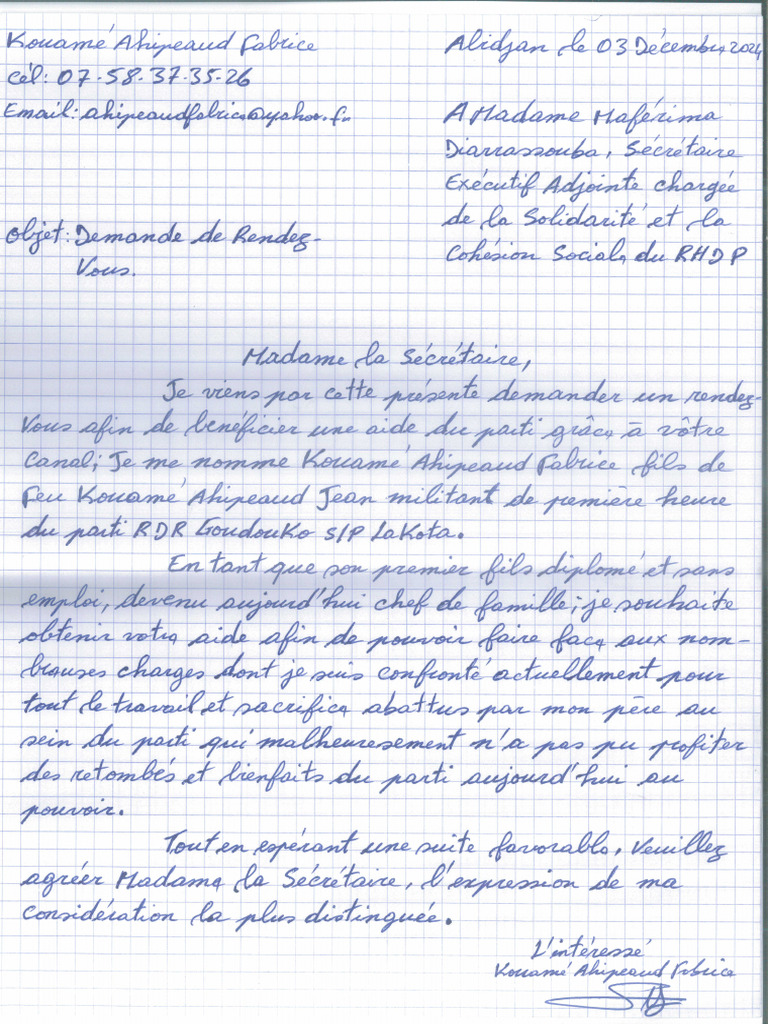 Kouamé Ahipeaud Fabrice
Cél: 07-58-37-35-26
Email: ahipeaudfabrice@yahoo.fr
Abidjan le 03 Décembre 2024
A Madame Maférima
Diarrassouba, Sécrétaire
Exécutif Adjointe chargée
de la Solidarité et la
Cohésion Sociale du RHDP
Objet: Demande de Rendez-
Vous.
Madame la Sécrétaire,
Je viens par cette présente demander un rendez-
Vous afin de bénéficier une aide du parti grâce à vôtre
Canal; Je me nomme Kouamé Ahipeaud Fabrice fils de
Feu Kouamé Ahipeaud Jean militant de première heure
du parti RDR Goudouko S/P Lakota.
En tant que son premier fils diplomé et sans
emploi, devenu aujourd'hui chef de famille; je souhaite
obtenir votre aide afin de pouvoir faire face aux nom-
breuses charges dont je suis confronté actuellement pour
tout le travail et sacrifice abattus par mon père au
sein du parti qui malheuresement n'a pas pu profiter
des retombés et bienfaits du parti aujourd'hui au
pouvoir.
Tout en espérant une suite favorable, Veuillez
agréer Madame la Sécrétaire, l'expression de ma
Considération la plus distinguée.
L'intéressé
Kouamé Ahipeaud Fabrice